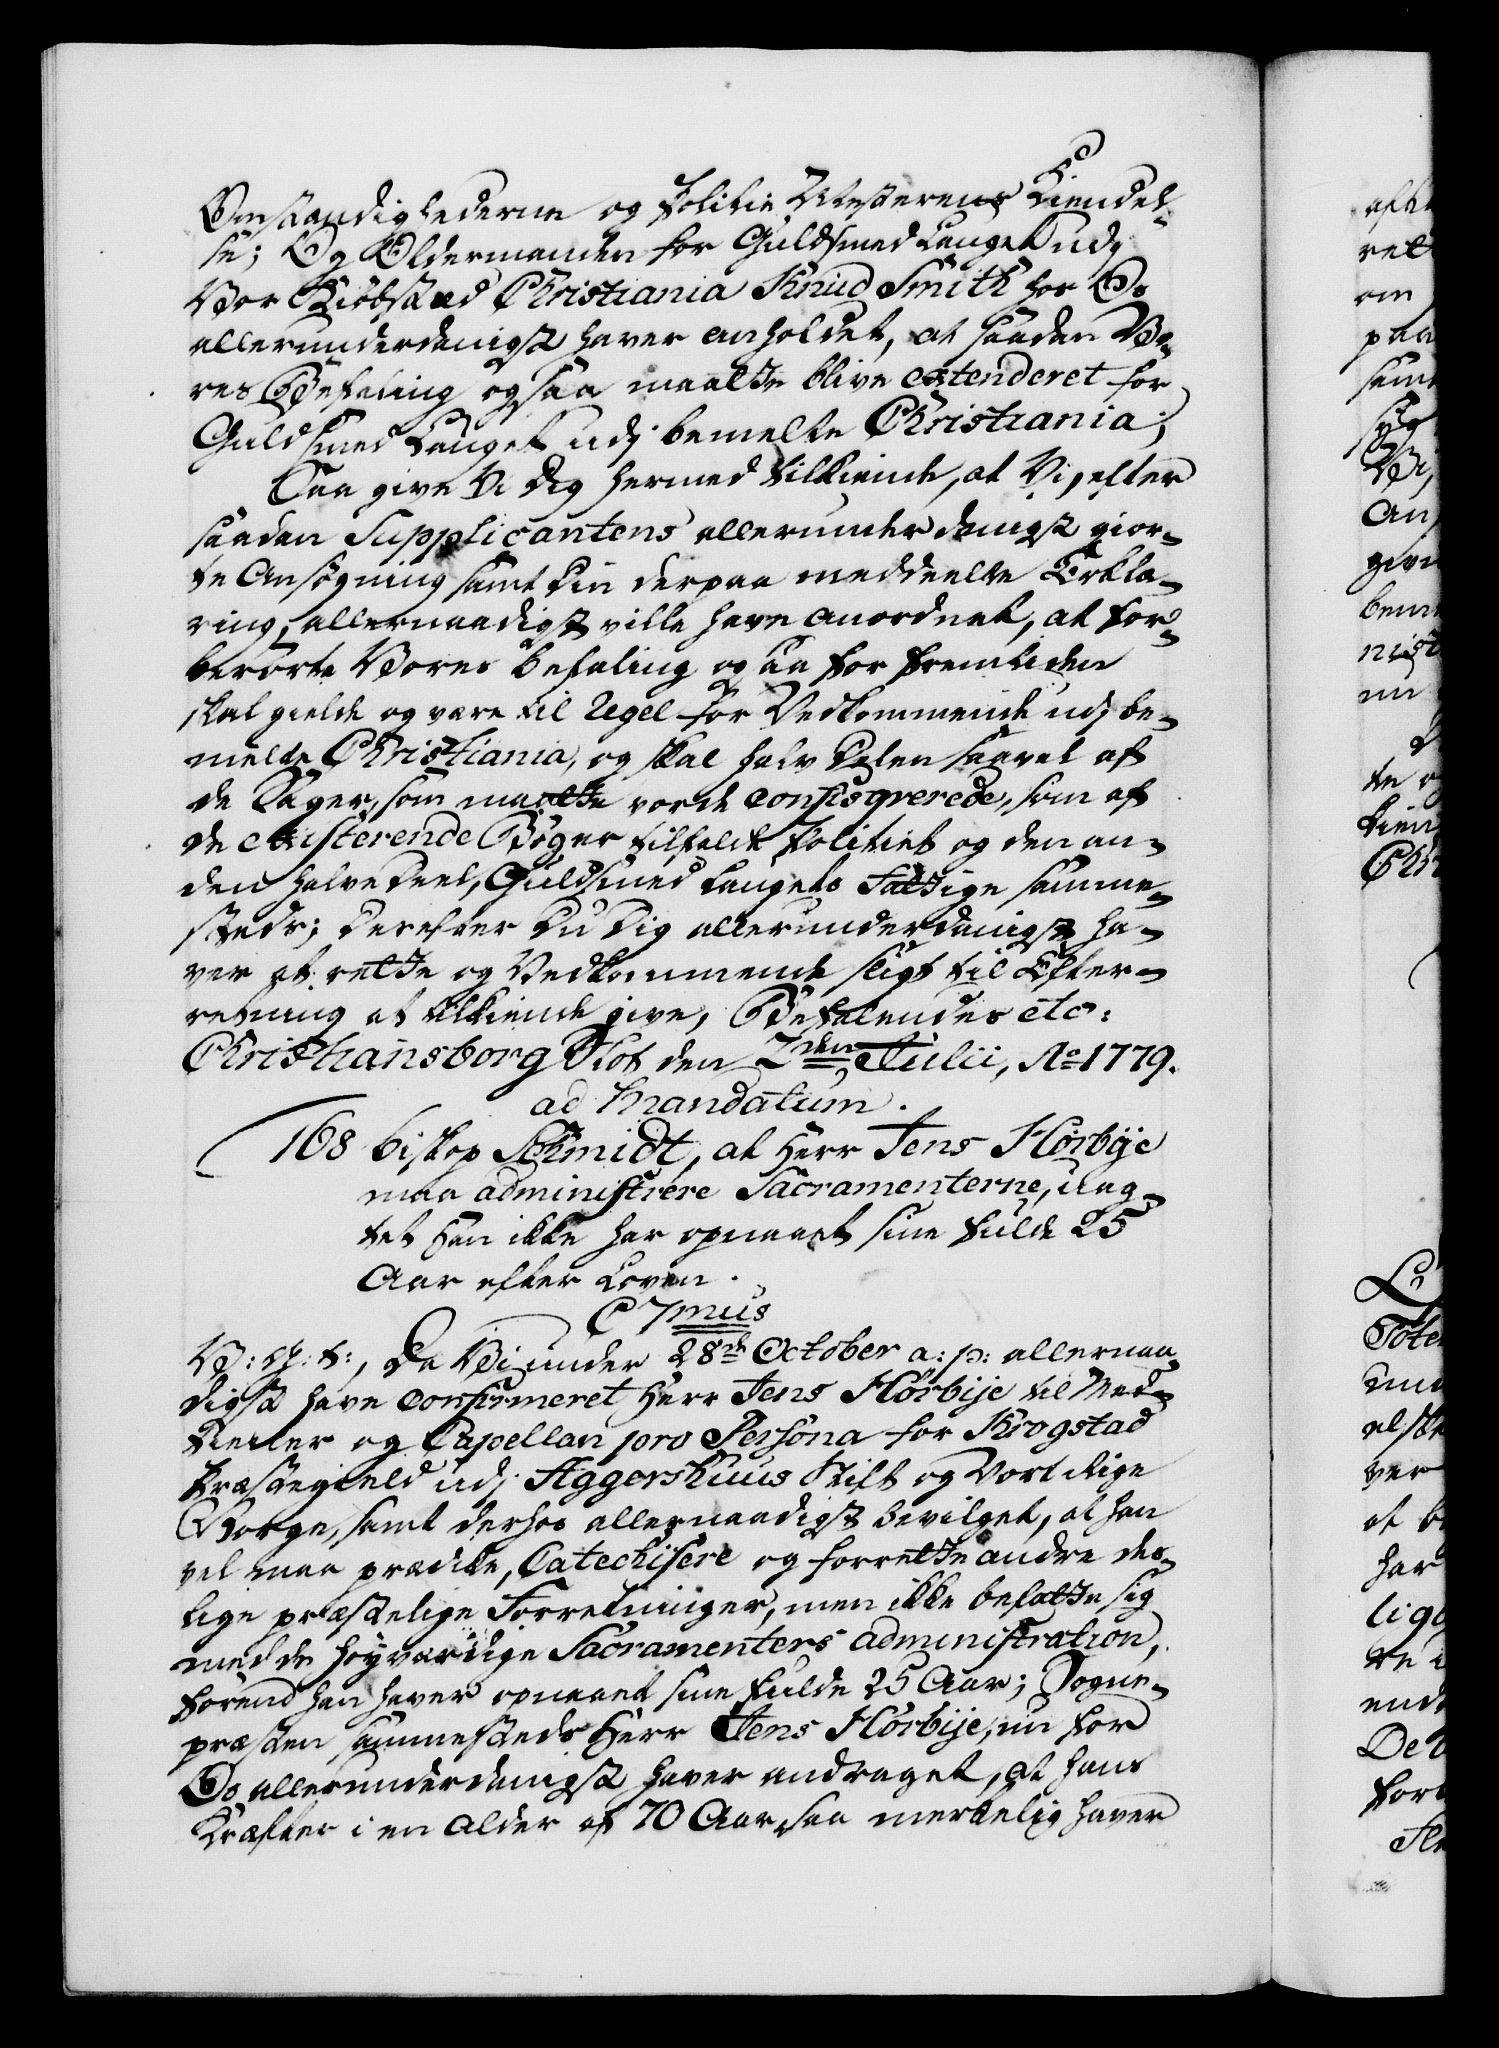 Omstændighederne og Politie Mesterens Kiendel-
se; Og Oldermanden for Guldsmed Lauget udj
Vor Kiöbstæd Christiania Knud Smith for Os
allerunderdanigst haver anholdet, at saadan Vo-
res Befaling ogsaa maatte blive extenderet for
Guldsmed Lauget udj bemelte Christiania;
Saa give Vi Dig hermed tilkiende, at Vi, efter
saadan Supplicantens allerunderdanigst gior-
te Ansøgning samt Din derpaa meddeelte Erklæ-
ring, allernaadigst ville have anordnet, at for-
berörte Vores Befaling ogsaa for Fremtiden
skal gielde og være til Regel for Vedkommende udj be-
melte Christiania, og skal halv Delen saavel af
de Sager, som maatte vorde confisqverede, som af
de existerende Bøger tilfalde Politiet og den an-
den halve Deel, Guldsmed Laugets Fattige samme-
steds; Derefter Du Dig allerunderdanigst ha-
ver at rette og Vedkommende sligt til Efter-
retning at tilkiende give, Befalendes etc:
Christiansborg Slot den 2den Julii, Ao 1779.
ad Mandatum.
168 Biskop Schmidt, at Herr Jens Hörbye
maa administrere Sacramenterne, uag-
tet han ikke har opnaaet sine fulde 25
Aar efter Loven.
C 7mus
V: G: T:, Da Vi under 28de October a: p: allernaa-
digst have confirmeret Herr Jens Hörbye til Med-
tiener og Capellan pro Persona for Krogstad
Præstegield udj Aggershuus Stift og Vort Rige
Norge, samt derhos allernaadigst bevilget, at han
vel maa prædike, Catechisere og forrette andre des-
lige præstelige Forretninger, men ikke befatte sig
med de høyværdige Sacramenters administration,
förend han haver opnaaet sine fulde 25 Aar; Sogne-
præsten sammesteds Herr Jens Hörbye, nu for
Os allerunderdanigst haver andraget, at hans
Kræfter i en Alder af 70 Aar, saa merkelig haver